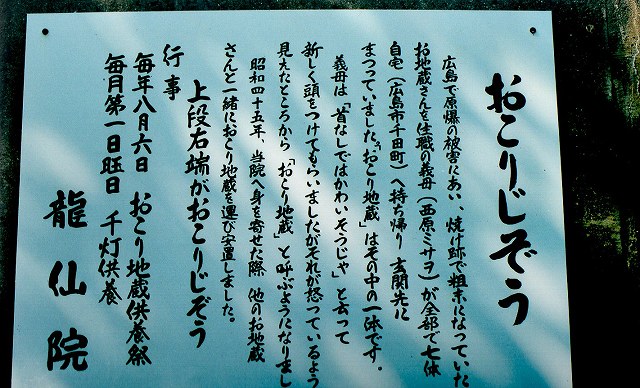 おこりじぞう
広島で原爆の被害にあい、焼け跡で粗末になっていた
お地蔵さんを住職の義母(西原ミサヲ)が全部で七体
自宅(広島市千田町)へ持ち帰り 玄関先に
まつっていました。「おこり地蔵」はその中の一体です。
義母は「首なしではかわいそうじゃ」と云って
新しく頭をつけてもらいましたがそれが怒っているよう
見えたところから「おこり地蔵」と呼ぶようになりまし
昭和四十五年、当院へ身を寄せた際 他のお地蔵
さんと一緒におこり地蔵を運び安置しました。
上段右端がおこりじぞう
行事
毎年八月六日 おこり地蔵供養祭
毎月第一日曜日 千灯供養
龍仙院